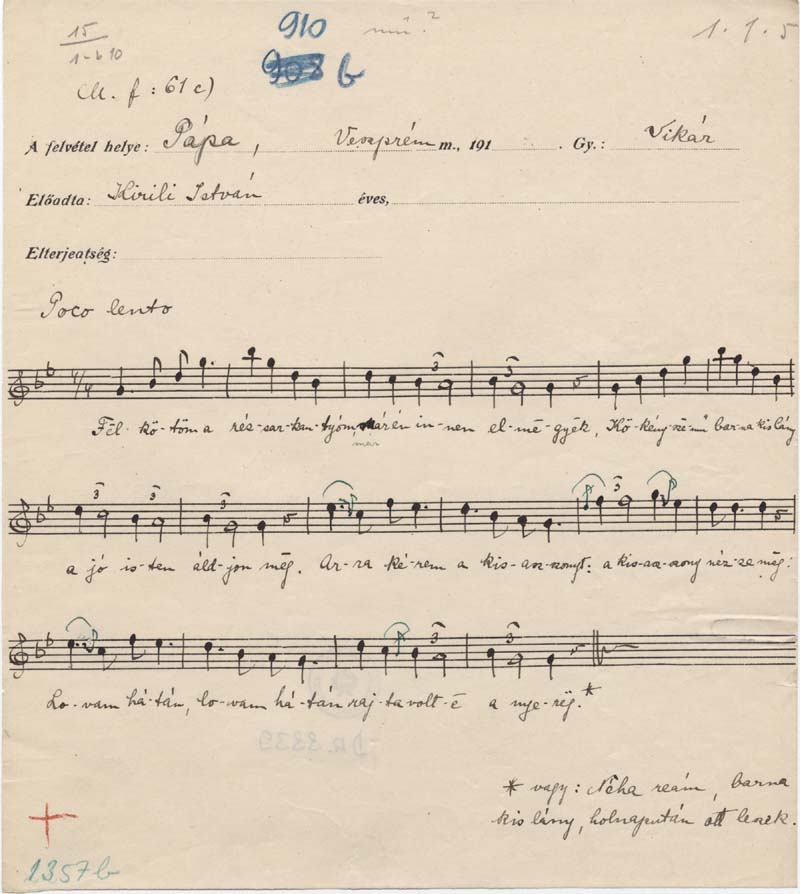 15 910 mű? 1. 1. 5
1-b 10 908 b
(M. f: 61 c)
A felvétel helye: Pápa, Veszprém m., 191 . Gy.: Vikár
Előadta: Kirili István éves,
Elterjedtség:
Poco lento
4/4 3 3 3 3
Fël-kö-töm a rés-sar-kan-tyóm, már én in-nen el-mē-gyëk, Kö-kény-sze-mű bar-na kis lány
már
3 3 3 3 3
a jó is-ten áld-jon mëg. Ar-ra ké-rem a kis-asz-szonyt: a kis-asz-szony néz-ze mëg:
3 3
Lo-vam há-tán, lo-vam há-tán raj-ta volt-ē a nye-rëg.*
DR. 3839
* vagy: Néha reám, barna
kis lány, holnapután ott leszek.
1357b